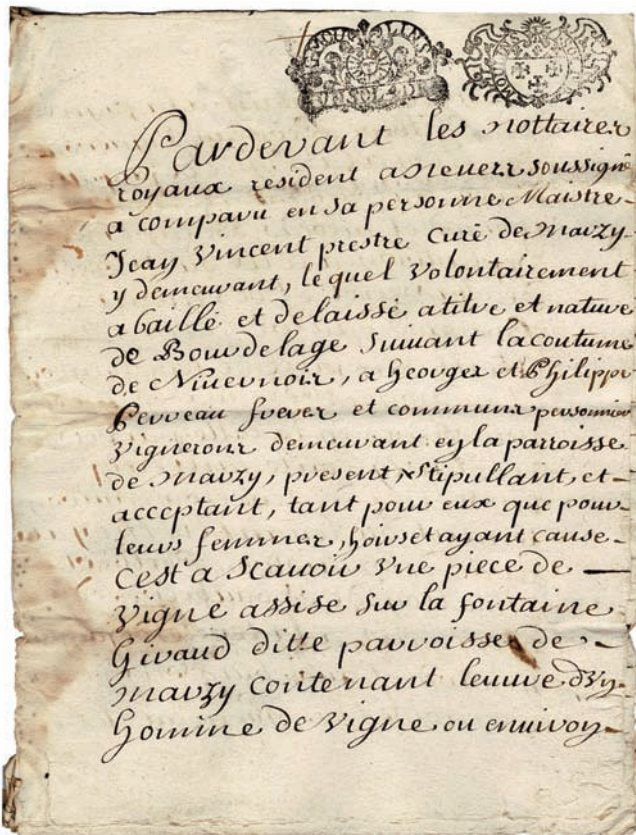 Pardevant les nottaires
royaux resident a nevers soussignes
a comparu en sa personne Maistre
Jean Vincent prestre Curé de Marzy
y demeurant, lequel Volontairement
a baillé et delaissé a titre et nature
de Bourdelage suivant la coutume
de Nivernois, a Georges et Philippe
Perreau freres et communs personniers
vignerons demeurant en la parroisse
de Marzy, present, stipullant, et
acceptant, tant pour eux que pour
leurs femmes, hoirs et ayant cause
Cest a Scavoir Une piece de
Vigne assise sur la fontaine
Giraud ditte parroisse de
Marzy Contenant leuvre dun
homme de Vigne ou environ